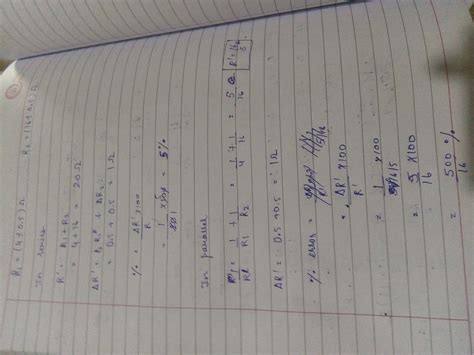 R₁ = (4 ± 0.5) Ω    R₂ = (16 ± 0.5) Ω
In series
R' = R₁ + R₂
= 4 + 16 = 20 Ω
ΔR' = ΔR₁ + ΔR₂
= 0.5 + 0.5 = 1 Ω
% = ΔR' × 100 / R'
= 5%
In parallel
1/R' = 1/R₁ + 1/R₂ = 1/4 + 1/16 = 5/16    R' = 16/5
ΔR' = 0.5 + 0.5 = 1 Ω
% error =
= ΔR' × 100 / R'
= 1 × 100 / 16/5
= 5 × 100 / 16
= 500 / 16 %